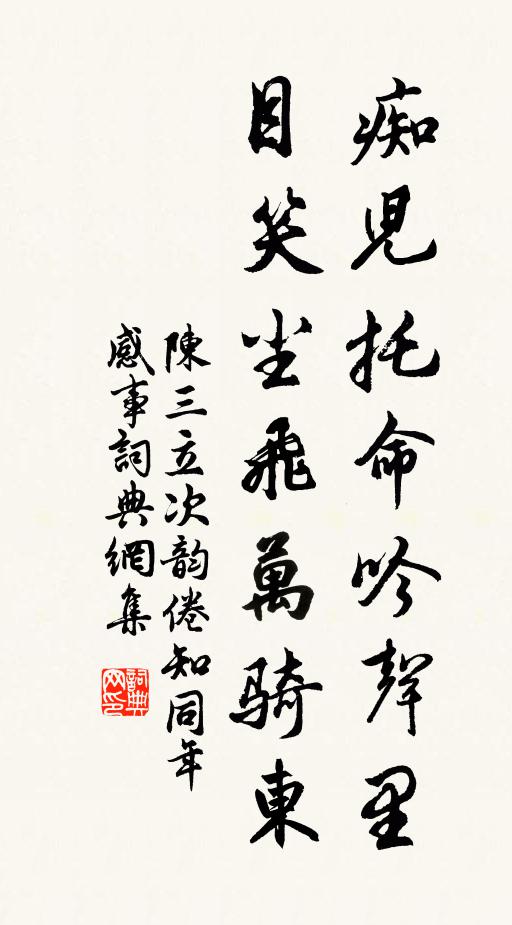 痴兒托命吟聲里
目笑塵飛萬騎東
陳三立次韵倦知同年
感事詞典網集
詞典网印